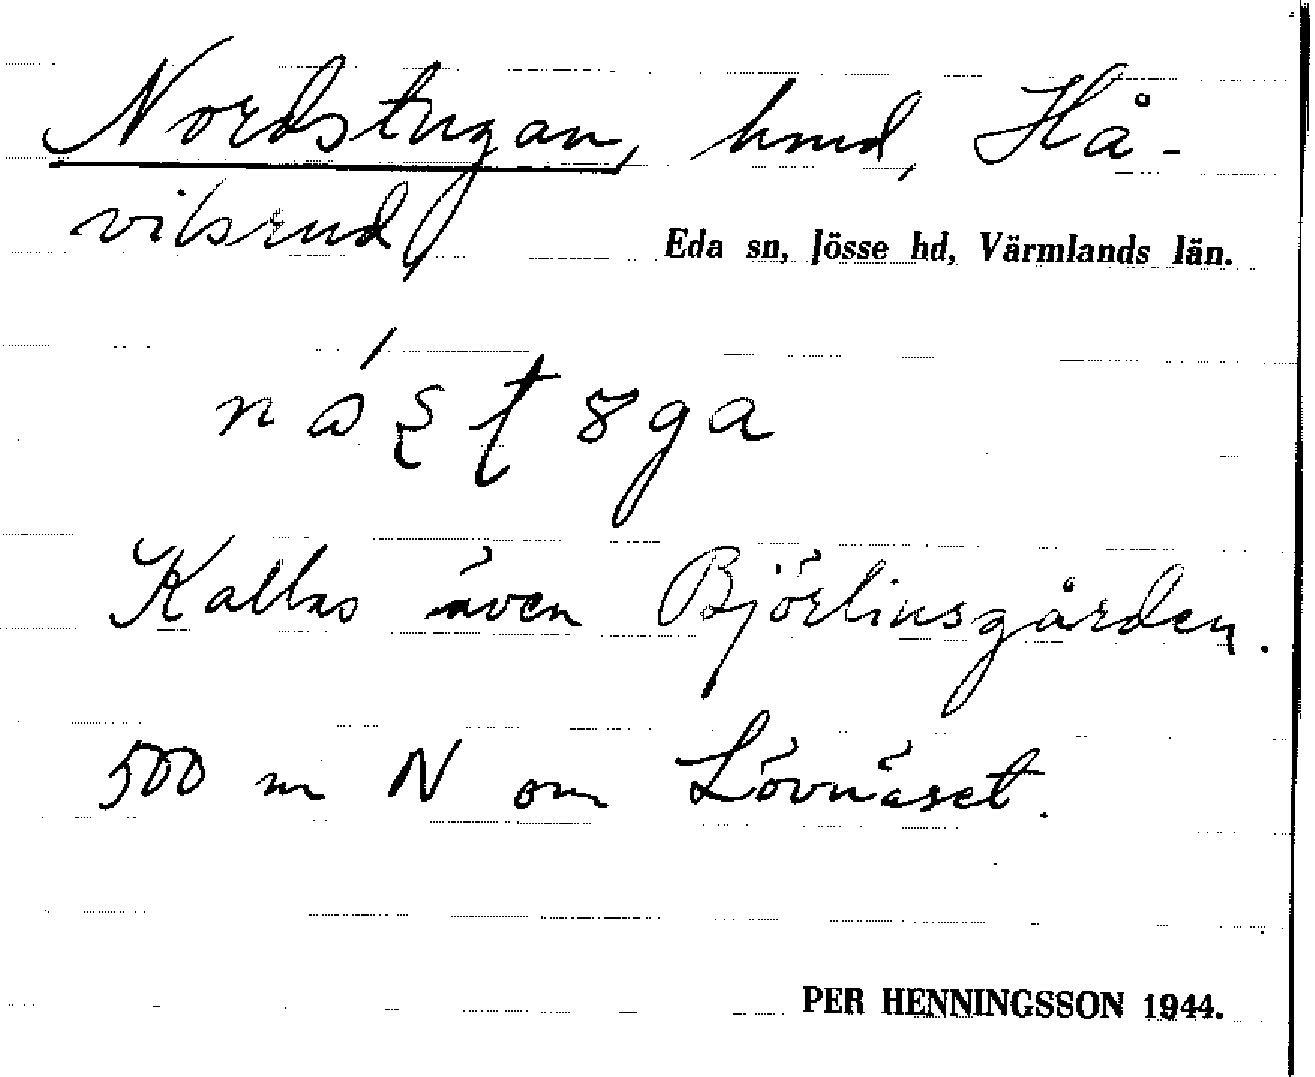 Nordstugan, hmd, Hå-
vilsrud,
Eda sn, Jösse hd, Värmlands län.
Kallas även Björlinsgården.
500 m N om Lövnäset.
PER HENNINGSSON 1944.